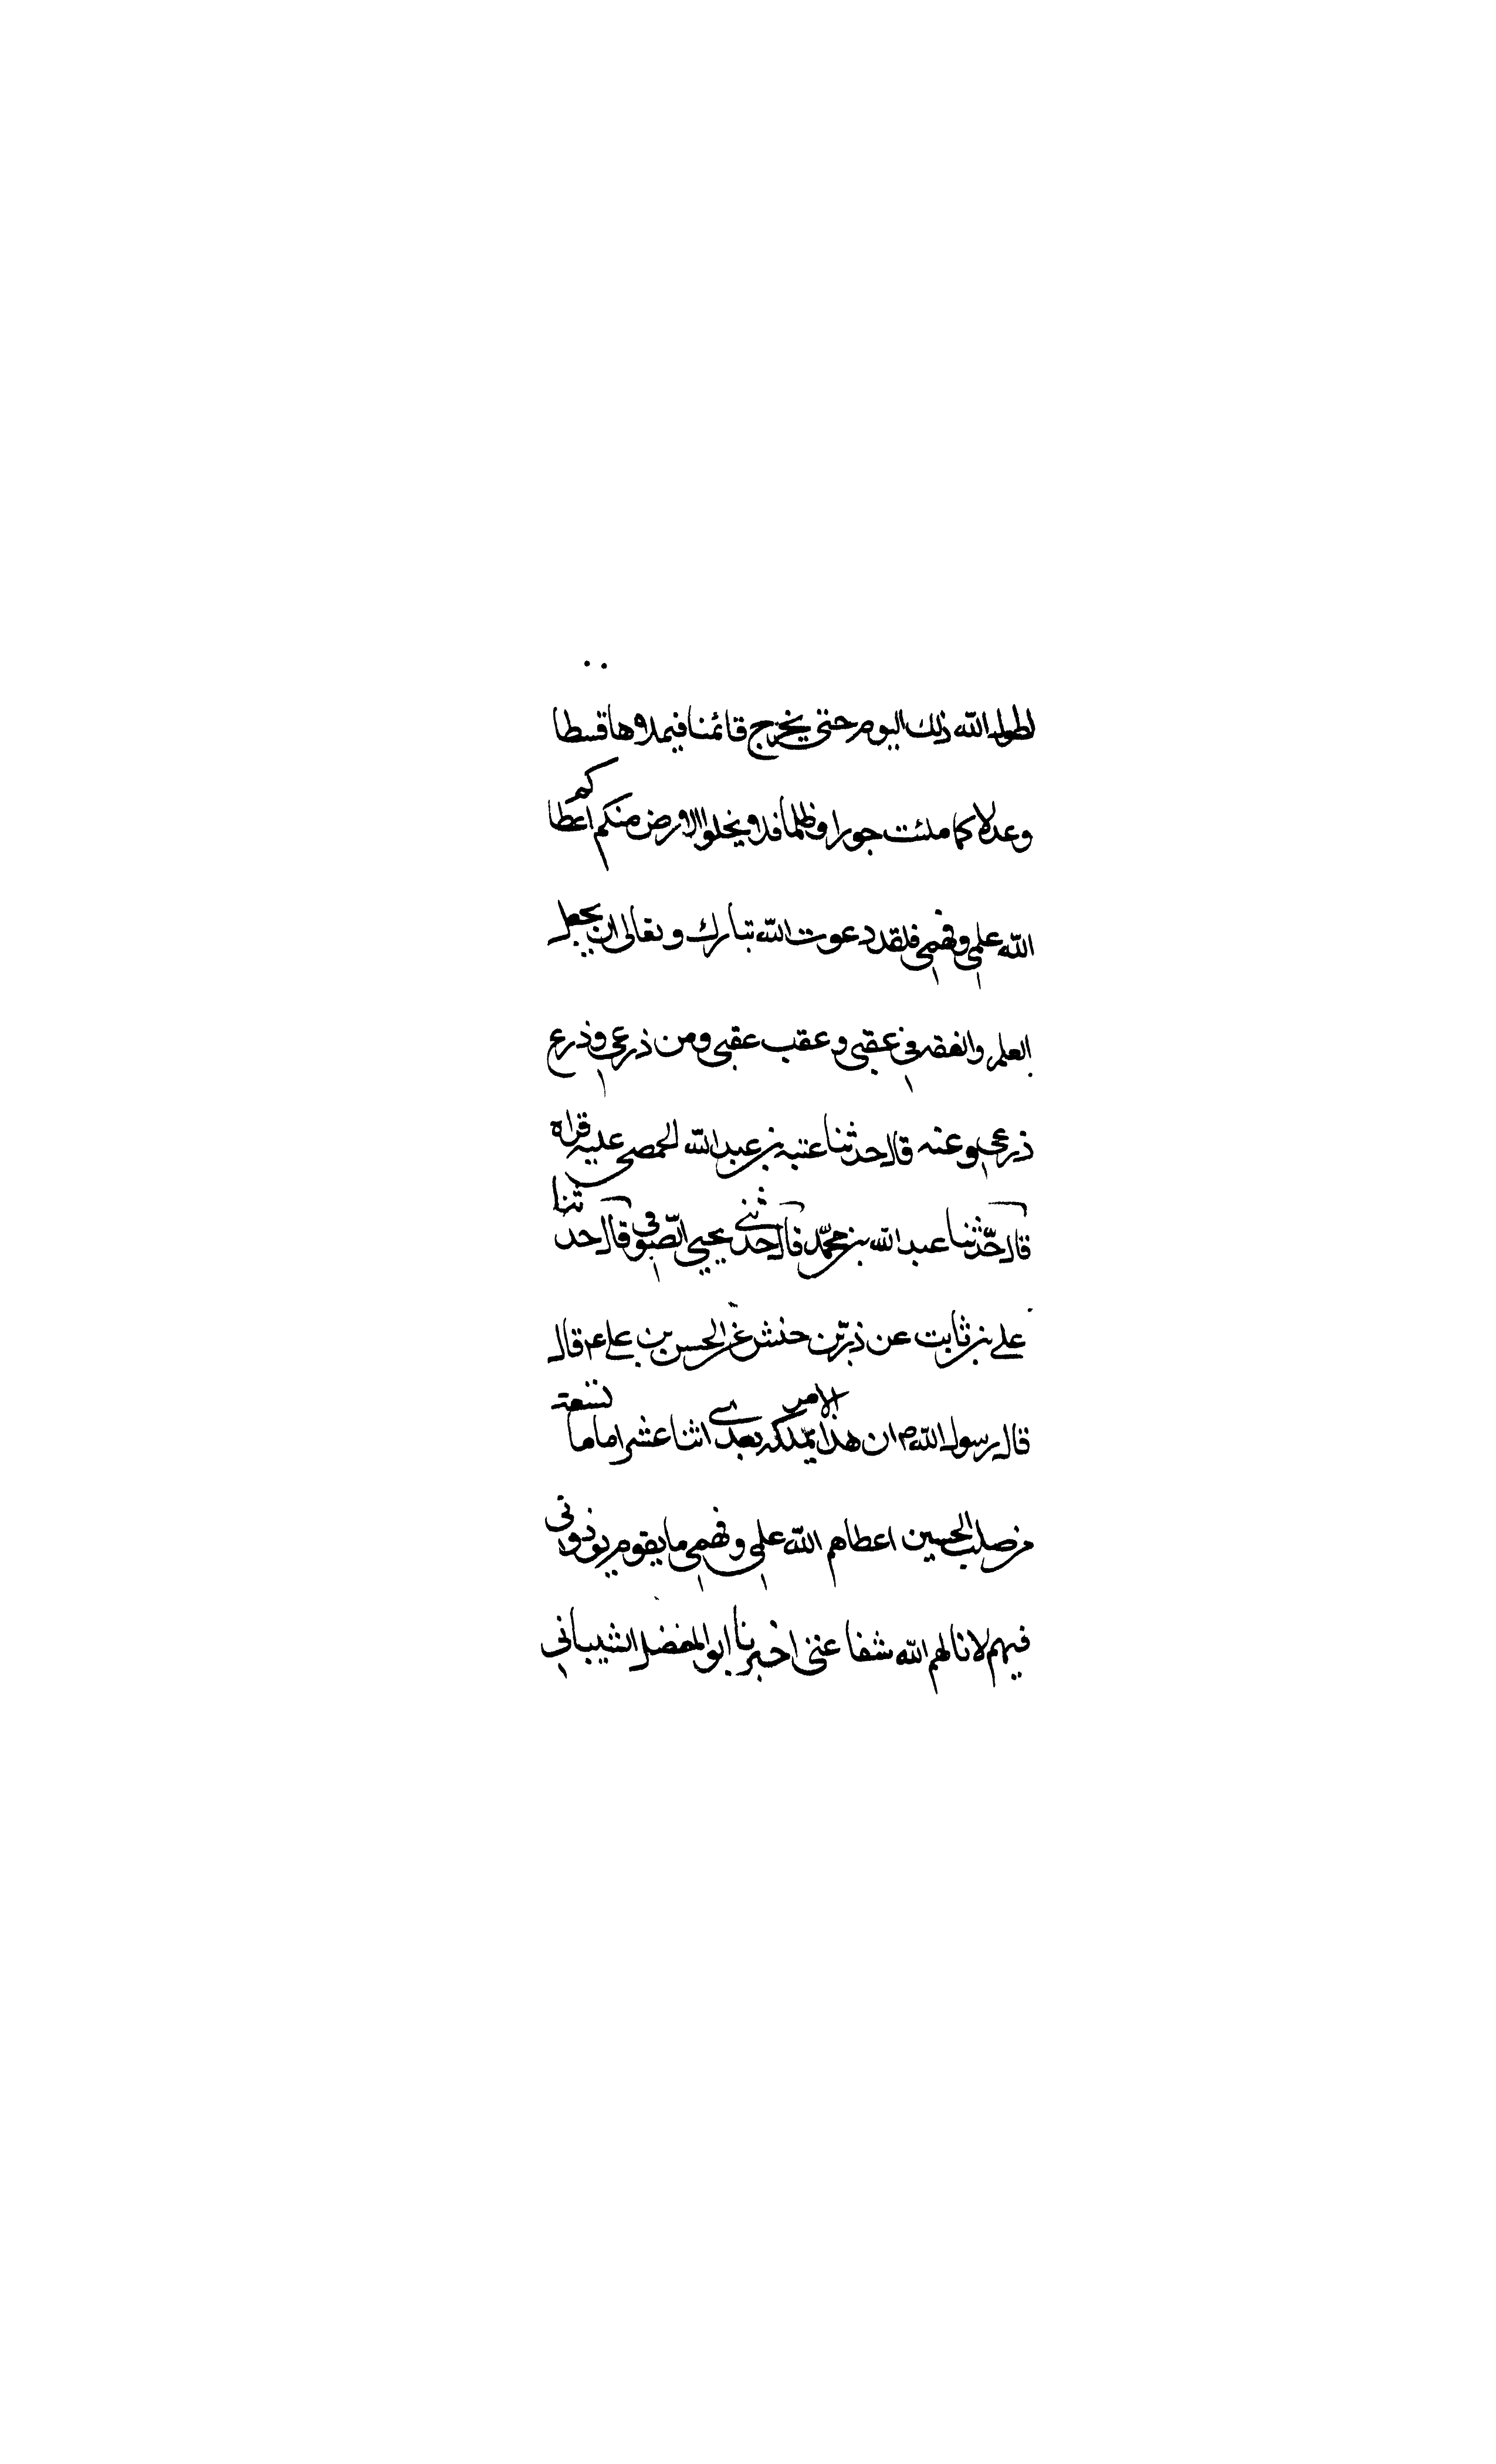 لطول الله ذلك اليوم حتى يخرج قائمنا فيملاوها قسطا
وعدلا كما ملئت جورا وظلما فلا ويخلوا الارض منكم اعطاكم
الله علمي وفهمي فلقد دعوت الله تبارك وتعالى ان يجعل
العلم والفقه في عقبي وعقب عقبي ومن ذرعي وذرع
ذرعي وعنه قال حدثنا عتبه بن عبدالله الحمصي عليه قراه
قال حدّثنا عبد الله بن محمّد قال حدثني يحيي الصّوفي قال حدثنا
علي بن ثابت عن ذرّ بن حنش عن الحسن بن علي ع قال
قال رسول الله ص ان هذا الامر يملكه بعدي اثنا عشر اماما تسعة
من صلب الحسين اعطاهم الله علمي وفهمي ما يقوم يوذوني
فيهم لا نالهم الله شفاعتي اخبرنا ابو المفضل الشيباني